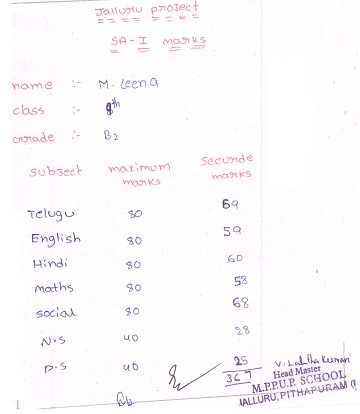 Jalluru project
SA-I marks
name :- M. Leena
class :- 8th
Grade :- B2
Subject maximum marks Securde marks
Telugu 80 69
English 80 59
Hindi 80 60
maths 80 58
social 80 68
N.S 40 28
P.S 40 25
367
V. Lalitha Kumari
Head Master
M.P.P.U.P. SCHOOL
JALLURU, PITHAPURAM